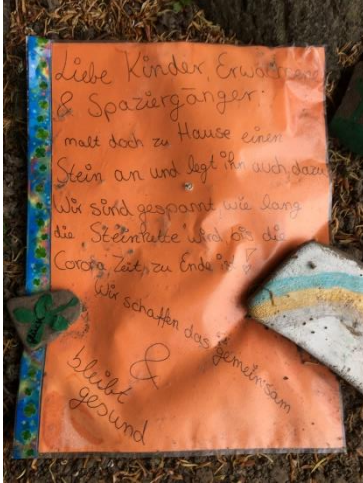 Liebe Kinder, Erwachsene
& Spaziergänger:
malt doch zu Hause einen
Stein an und legt ihn auch dazu.
Wir sind gespannt wie lang
die Steinkette wird bis die
Corona Zeit zu Ende ist!
Wir schaffen das gemeinsam
&
bleibt
gesund